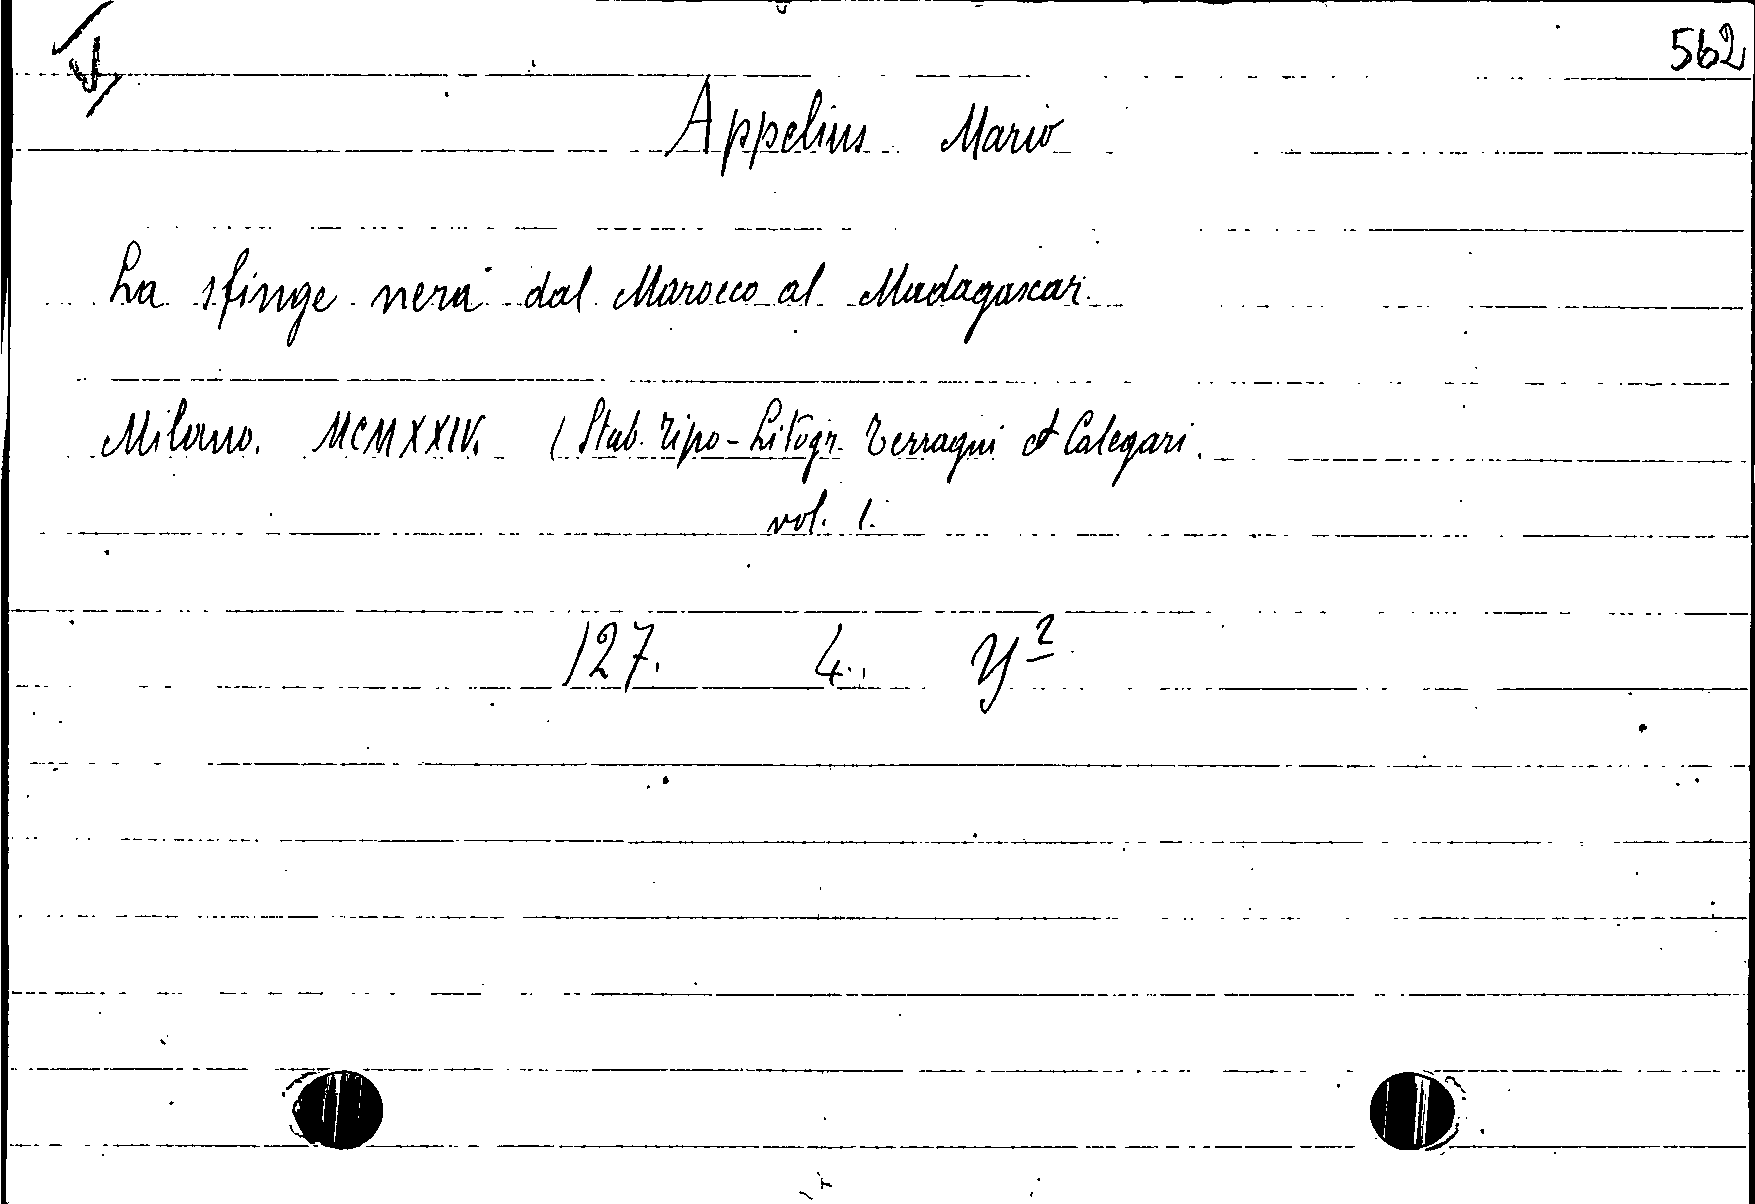 562
Appelius Mario
La sfinge nera dal Marocco al Madagascar.
Milano. MCMXXIV. (Stab. Tipo-Litogr. Terragni et Calegari.
vol. 1.
127. 4. y²